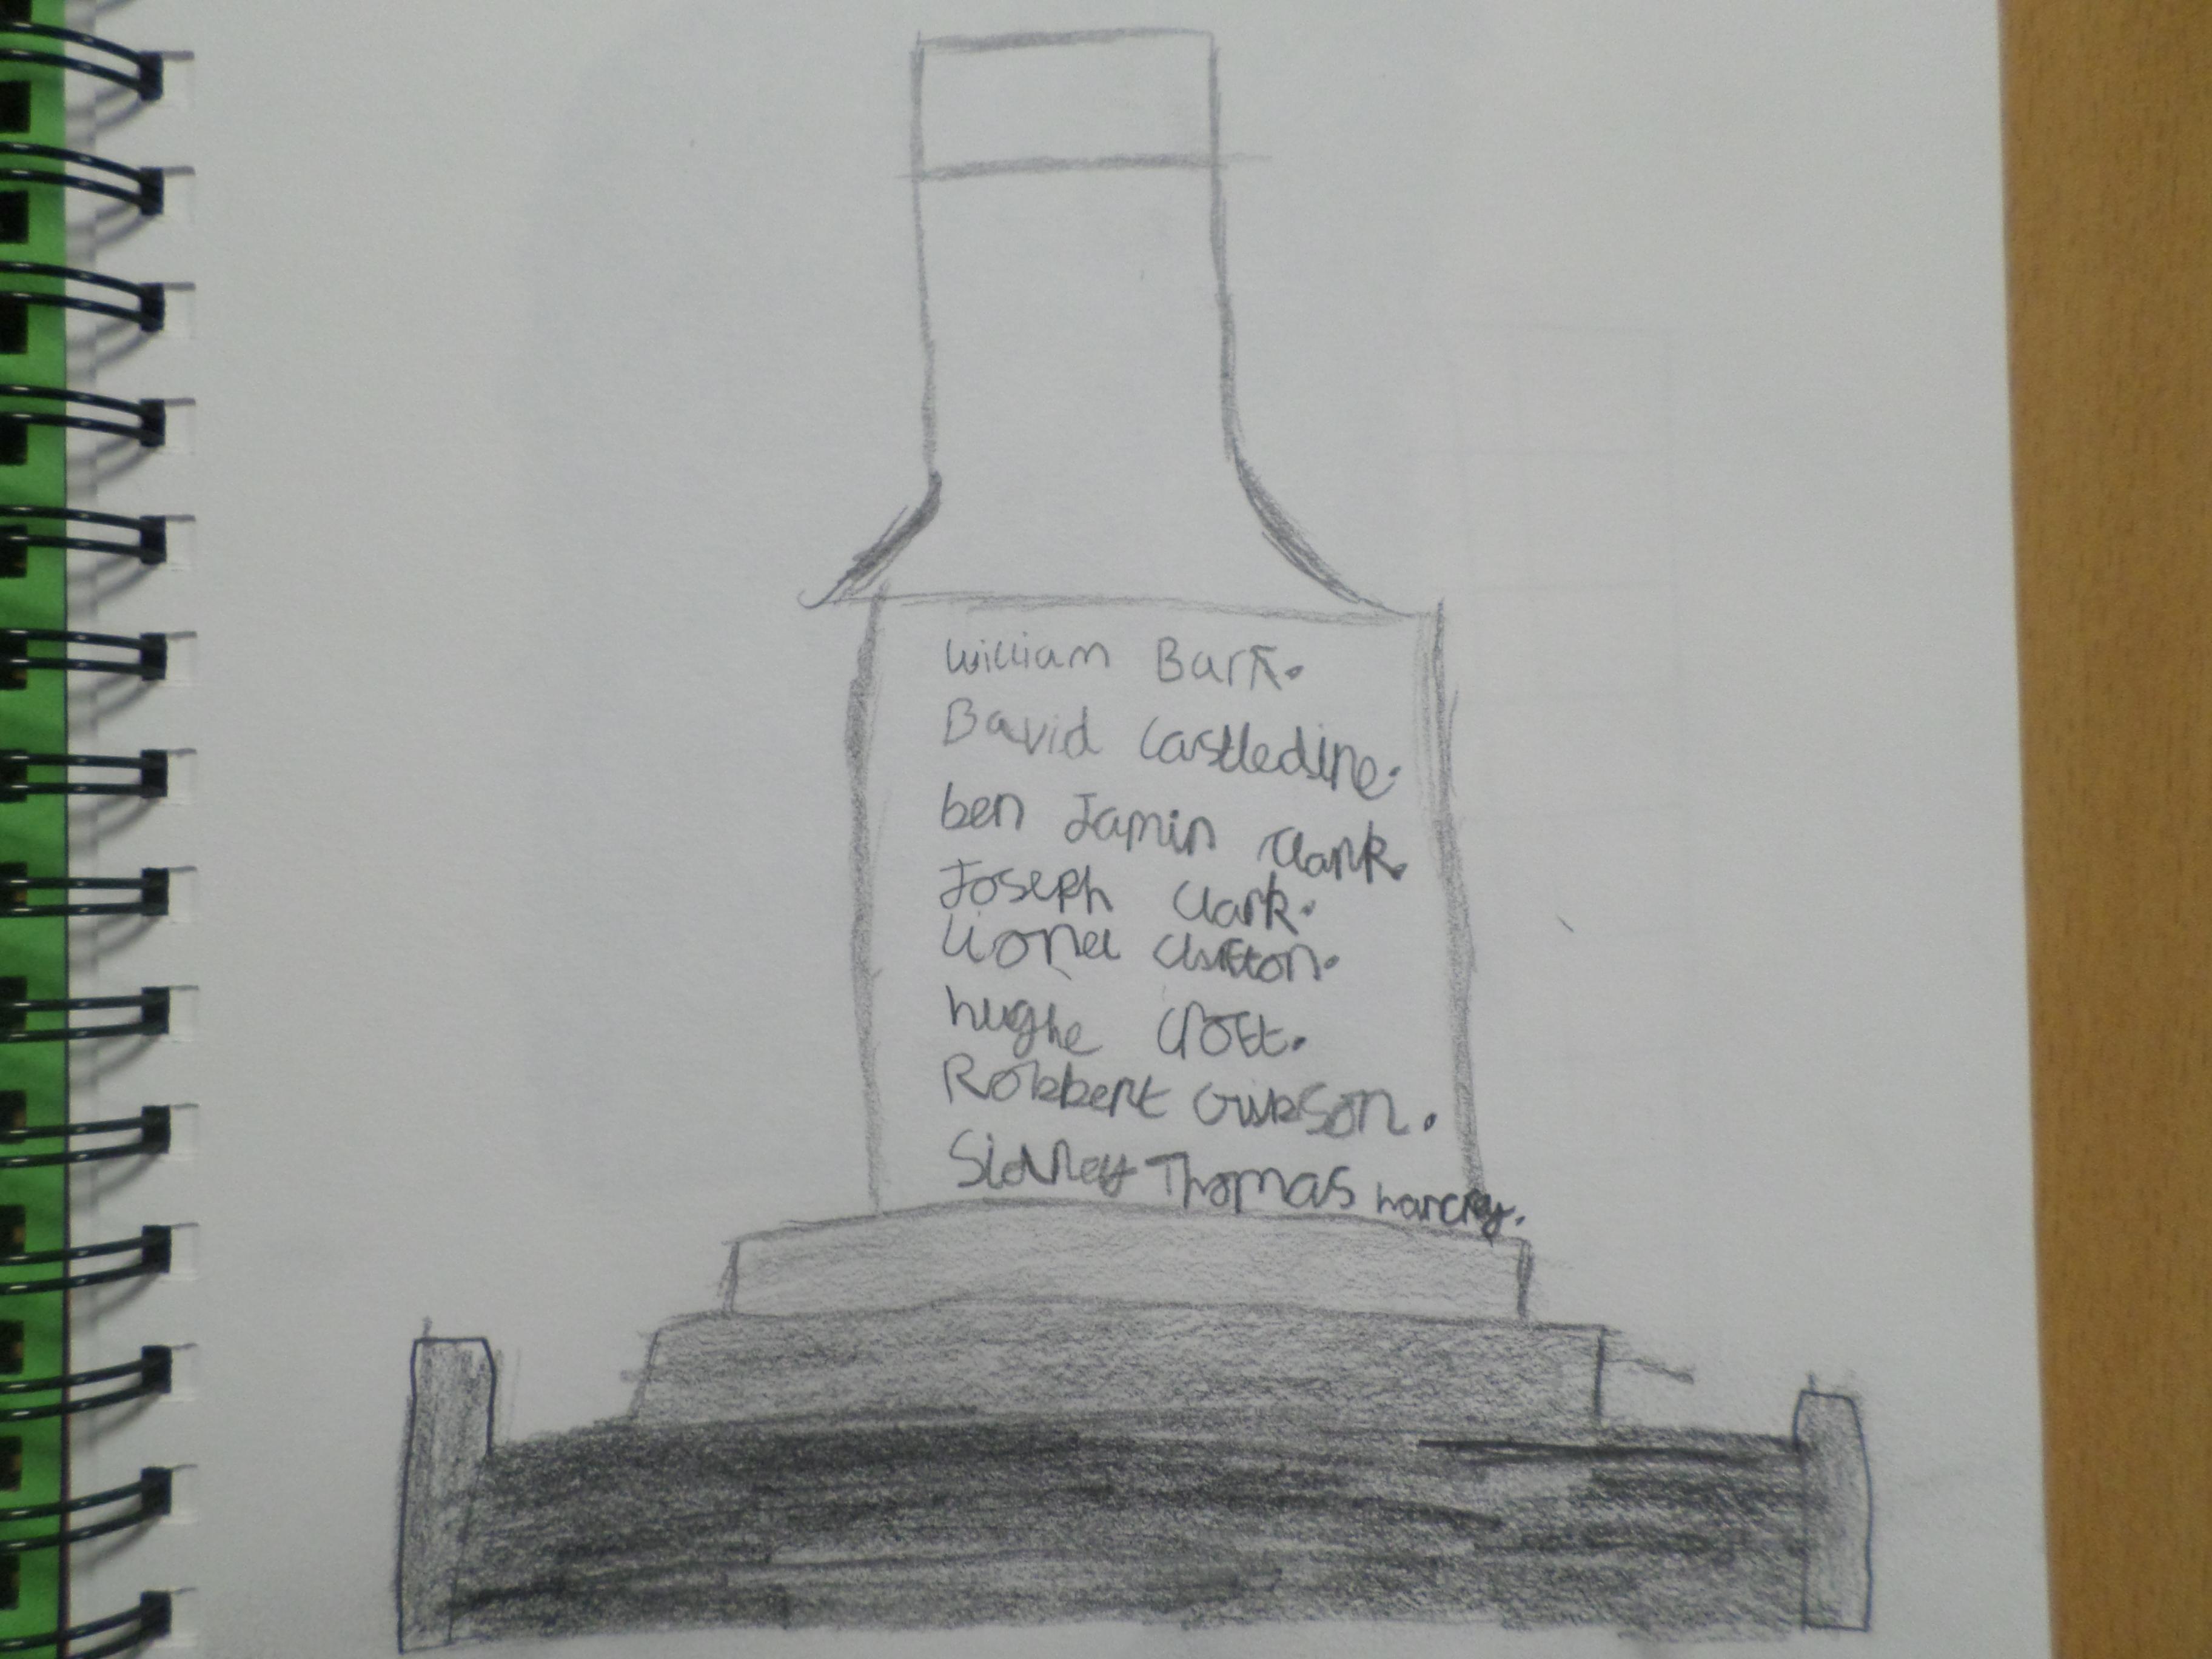 William Bark.
David Castledine.
ben Jamin Clark.
Joseph Clark.
Lionel Clifton.
hughe Croft.
Robbert Gibson.
Sidney Thomas